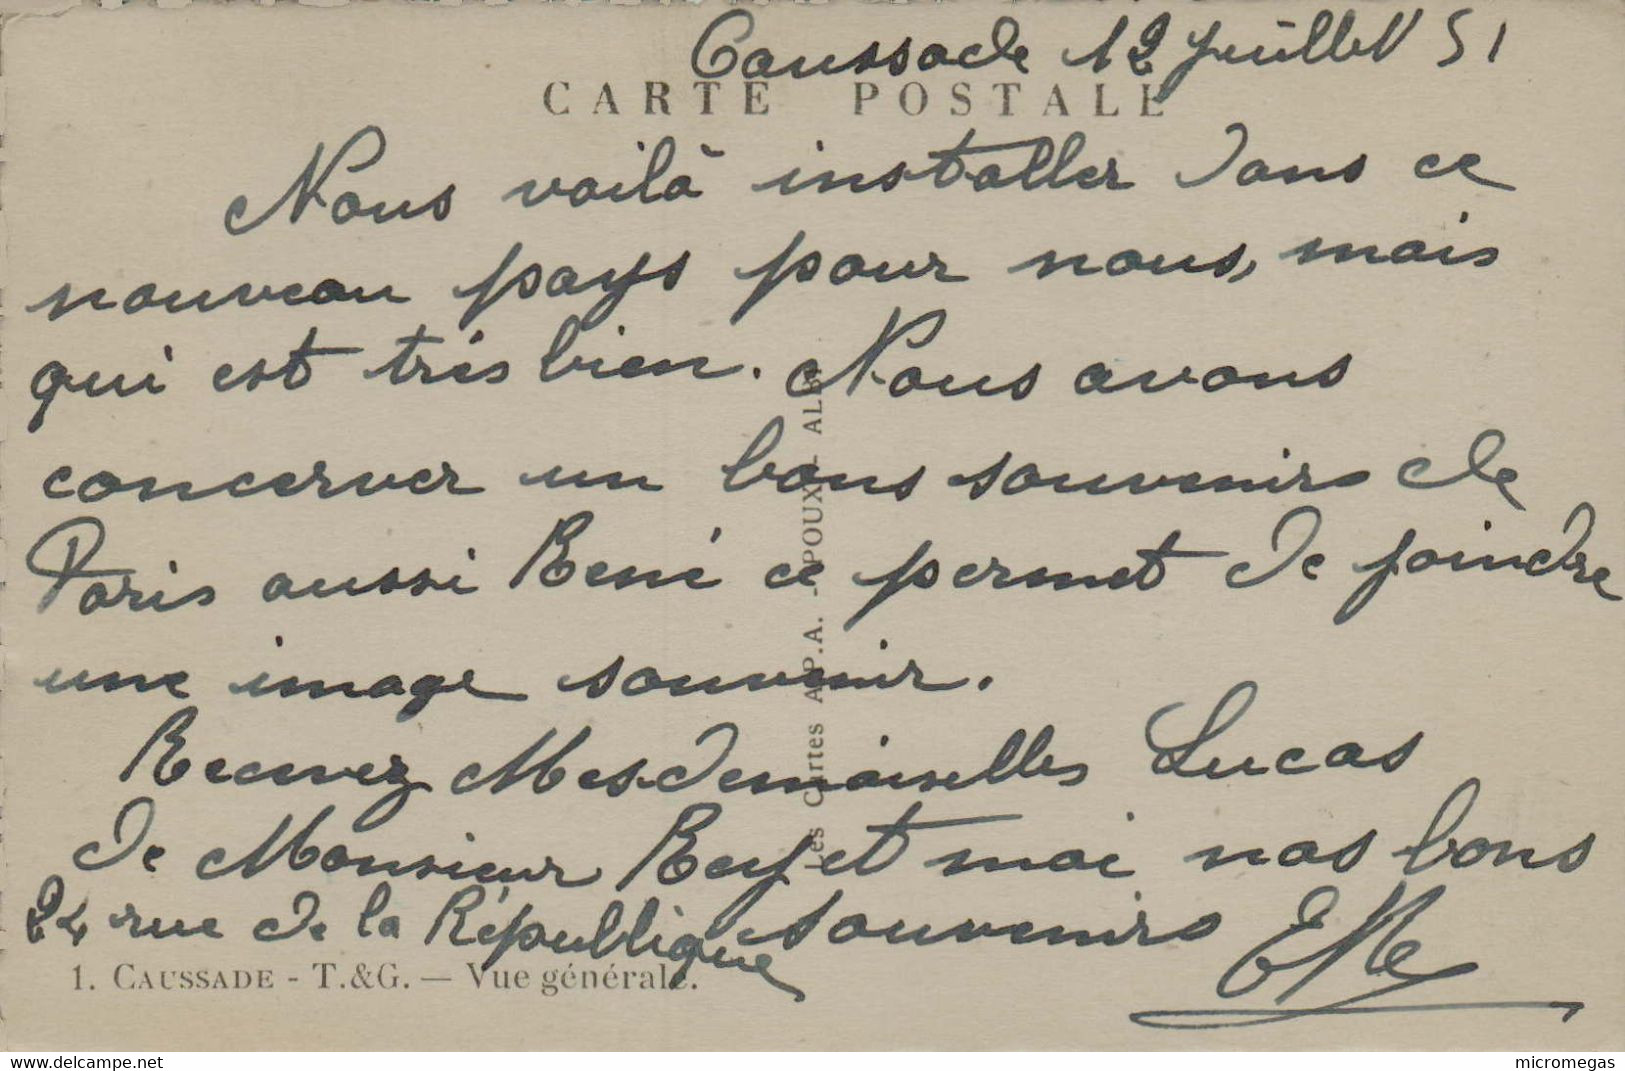 Caussade 12 juillet 51
CARTE POSTALE
Nous voilà installer dans ce
nouveau pays pour nous, mais
qui est très bien. Nous avons
concerver un bons souvenirs de
Paris aussi René ce permet de joindre
une image souvenir.
Recevez Mesdemoiselles Lucas
de Monsieur Rey et moi nos bons
souvenirs
24 rue de la République
1. CAUSSADE - T.&G. — Vue générale.
Les Cartes A.P.A. - POUX - ALBI
www.delcampe.net
micromegas